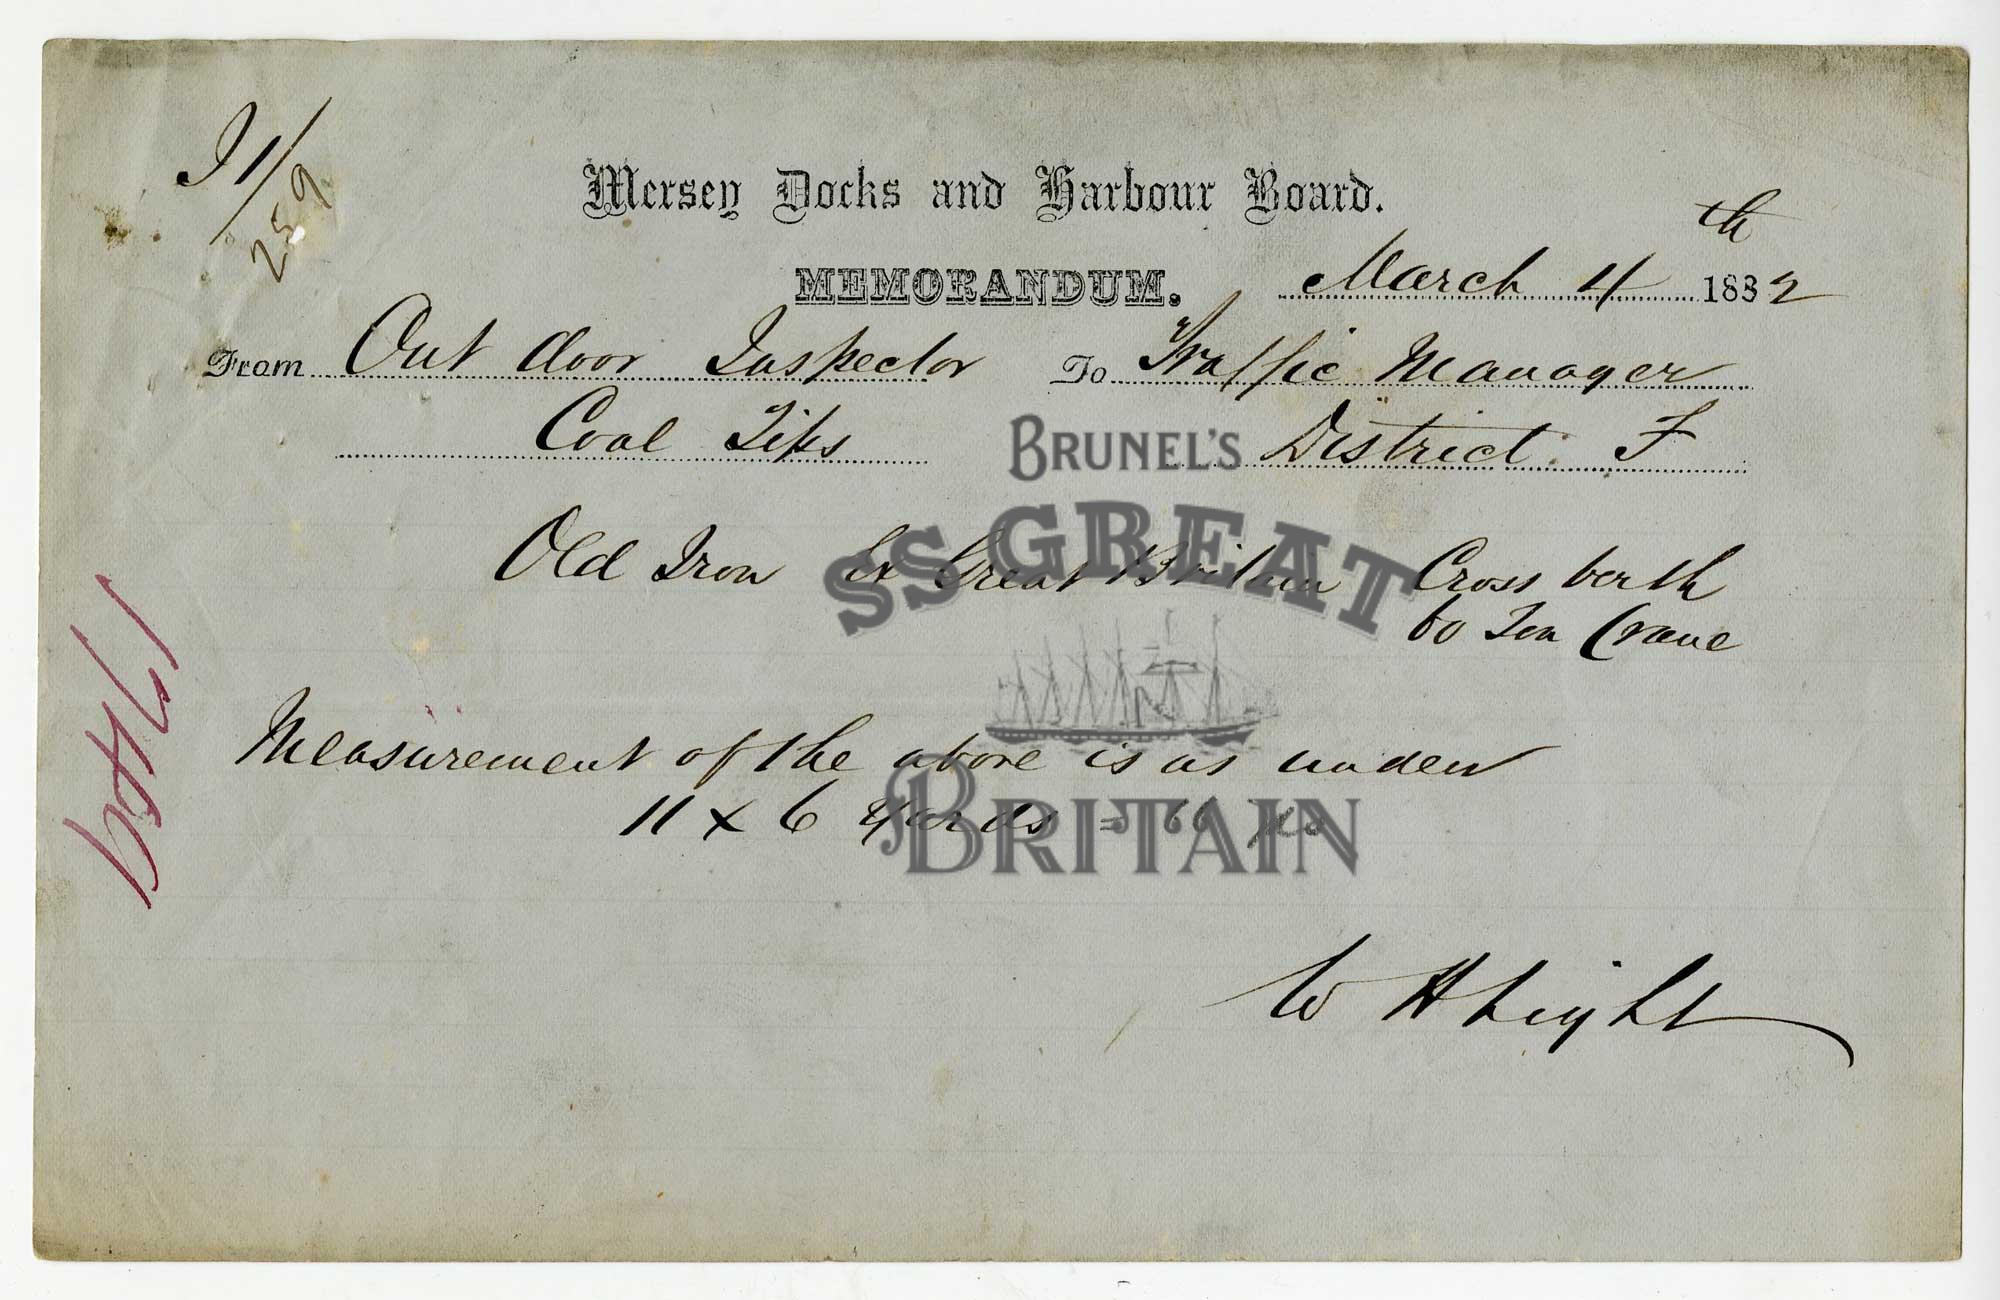 I 1/
259
Mersey Docks and Harbour Board.
MEMORANDUM. March 4th 1882
From Out door Inspector To Traffic Manager
Coal Tips District F
Old Iron Ex Great Britain Cross berth
60 Ton Crane
Measurement of the above is as under
11 x 6 Yards = 66 yds
W H Light
BRUNEL'S
SS GREAT
BRITAIN